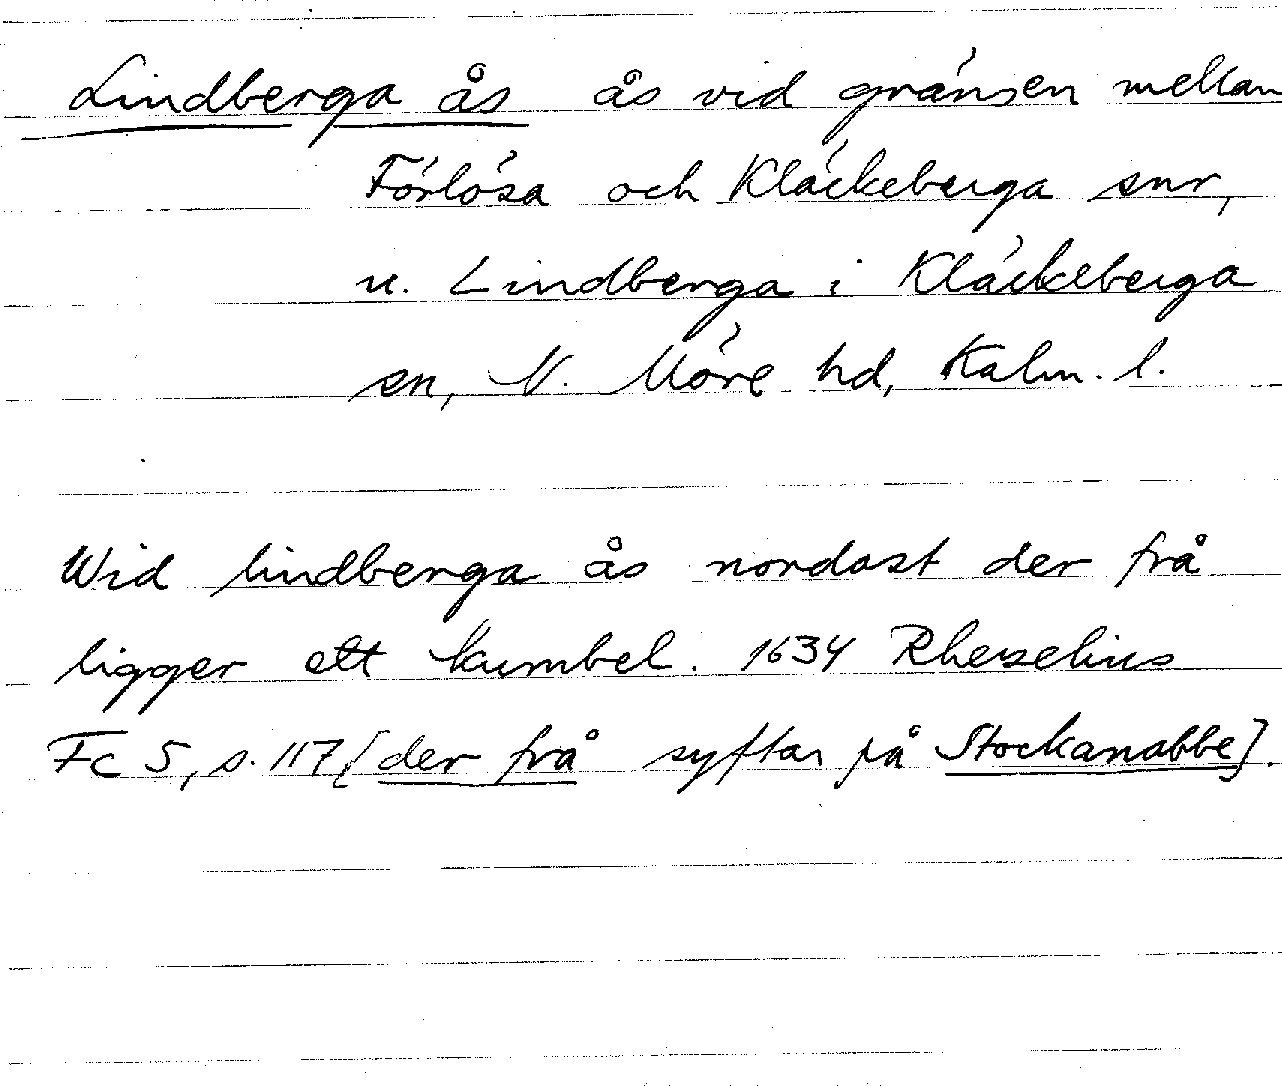 Lindberga ås ås vid gränsen mellan
Förlösa och Kläckeberga snr,
u. Lindberga i Kläckeberga
sn, N. Möre hd, Kalm. l.
Wid lindberga ås nordost der frå
ligger ett kumbel. 1634 Rhezelius
Fc 5, s. 117 [der frå syftar på Stockanabbe].